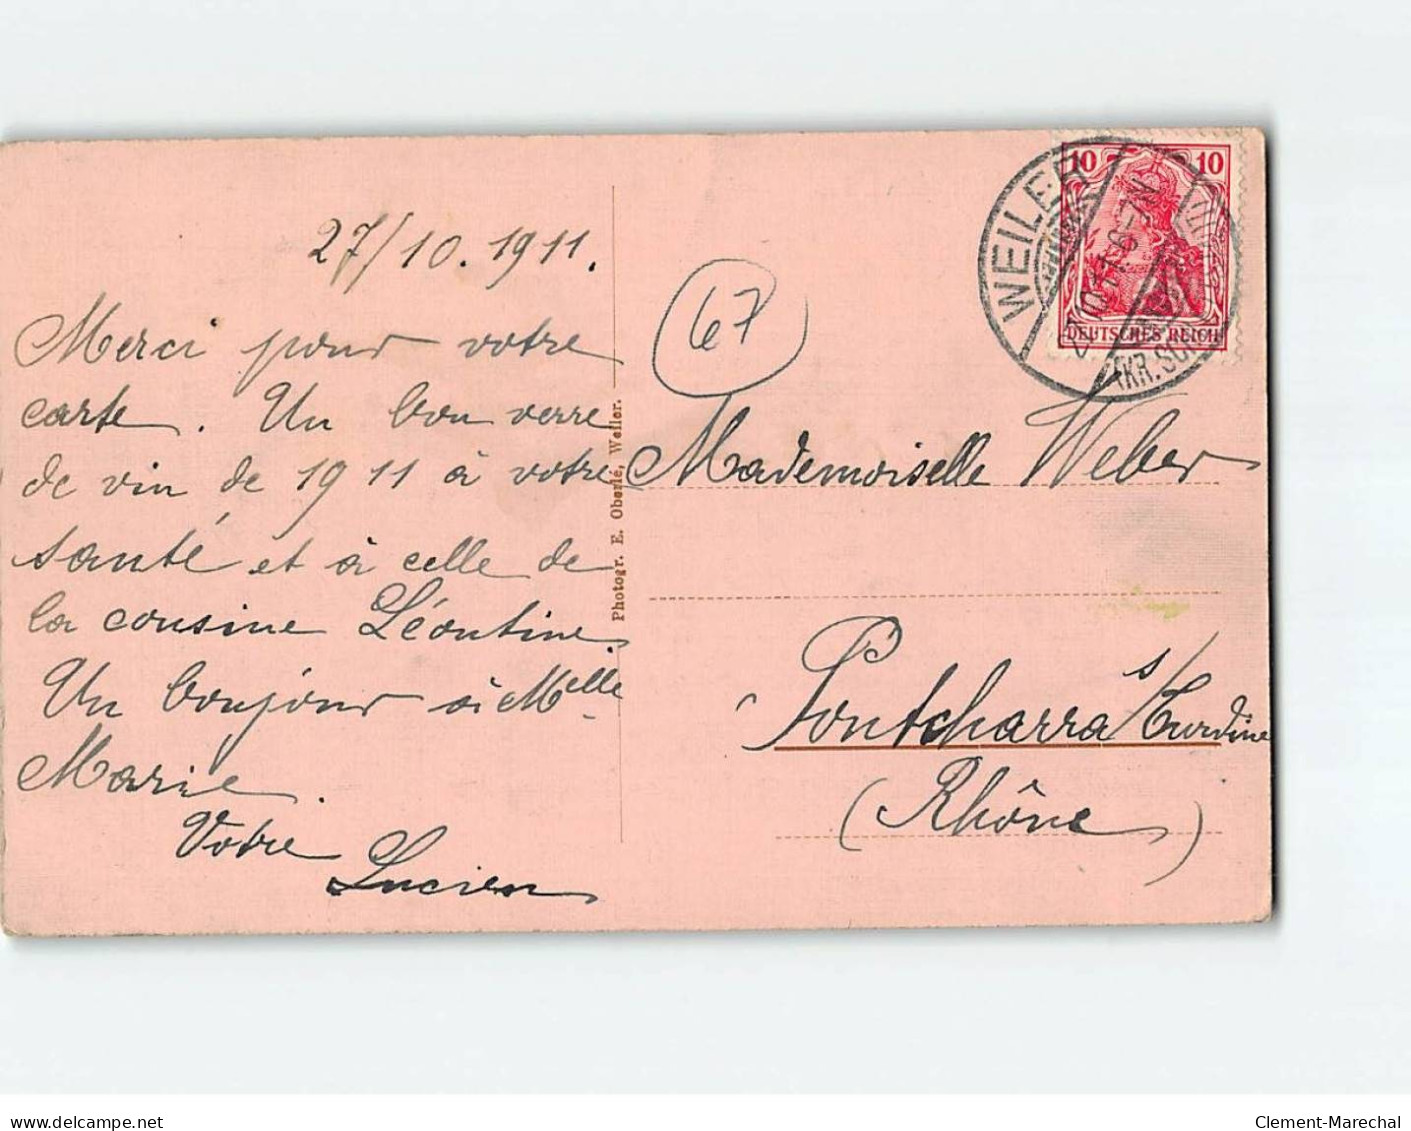 27/10.1911.
Merci pour votre
carte. Un bon verre
de vin de 1911 à votre
santé et à celle de
la cousine Léontine
Un bonjour à Melle
Marie.
Votre
Lucien
Photogr. E. Oberlé, Weiler.
67
10 10
DEUTSCHES REICH
WEILER
(KR. SC
Mademoiselle Weber
Pontcharra s/Turdine
(Rhône)
delcampe.net
Clement-Marechal